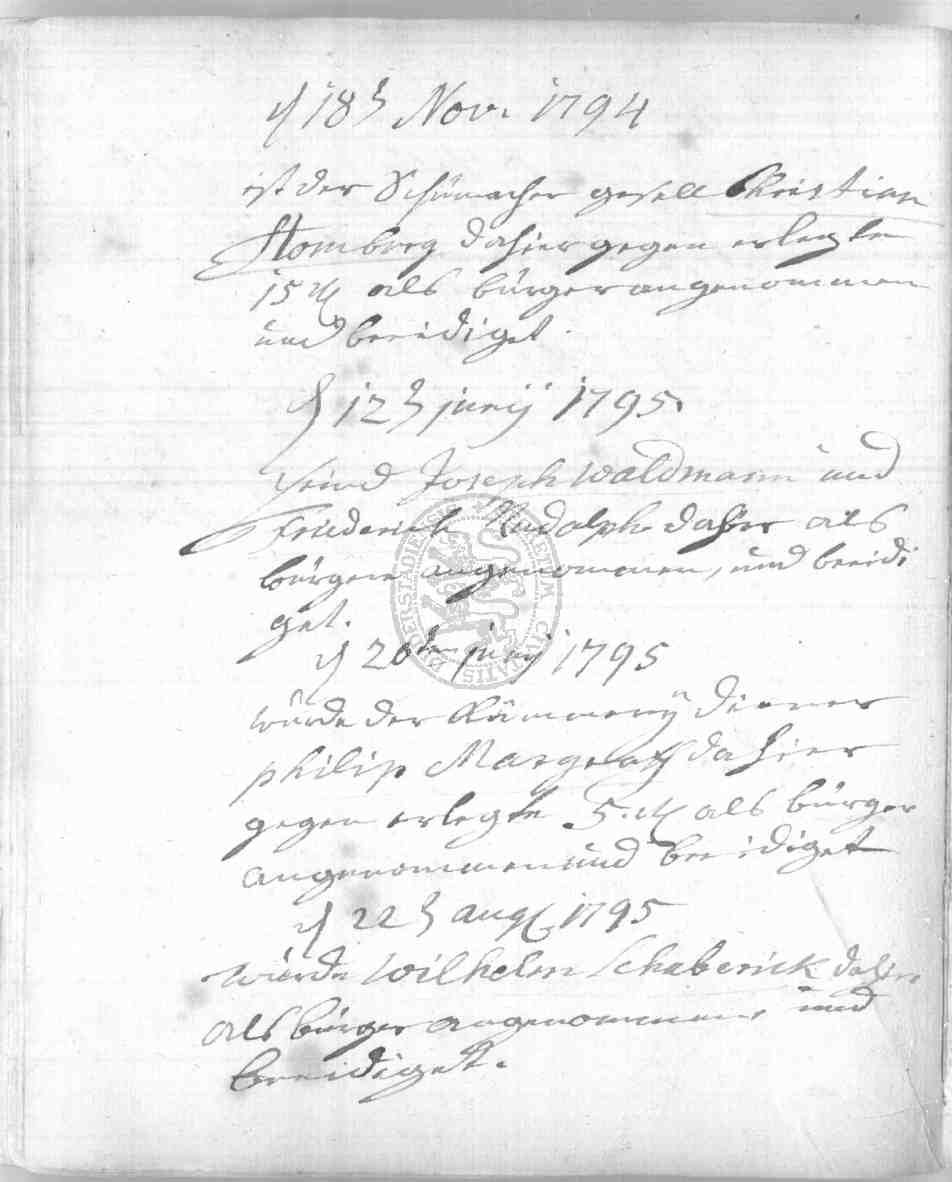 d 18t Nov. 1794
ist der Schümacher gesell Christian
Homburg dahier gegen erlegte
15 als bürger angenommen
und beeidiget.
d 12t junij 1795.
seind Joseph Waldmann und
Friederich Rudolph dahier als
bürgere angenommen, und beeidi
get.
d 20ten junij 1795
würde der Kämmereÿ diener
philip Margraff dahier
gegen erlegte 5. als bürger
angenommen und beeidiget
d 22t aug 1795
würde Wilhelm Schaberick dahier
als bürger angenommen, und
beeidiget.